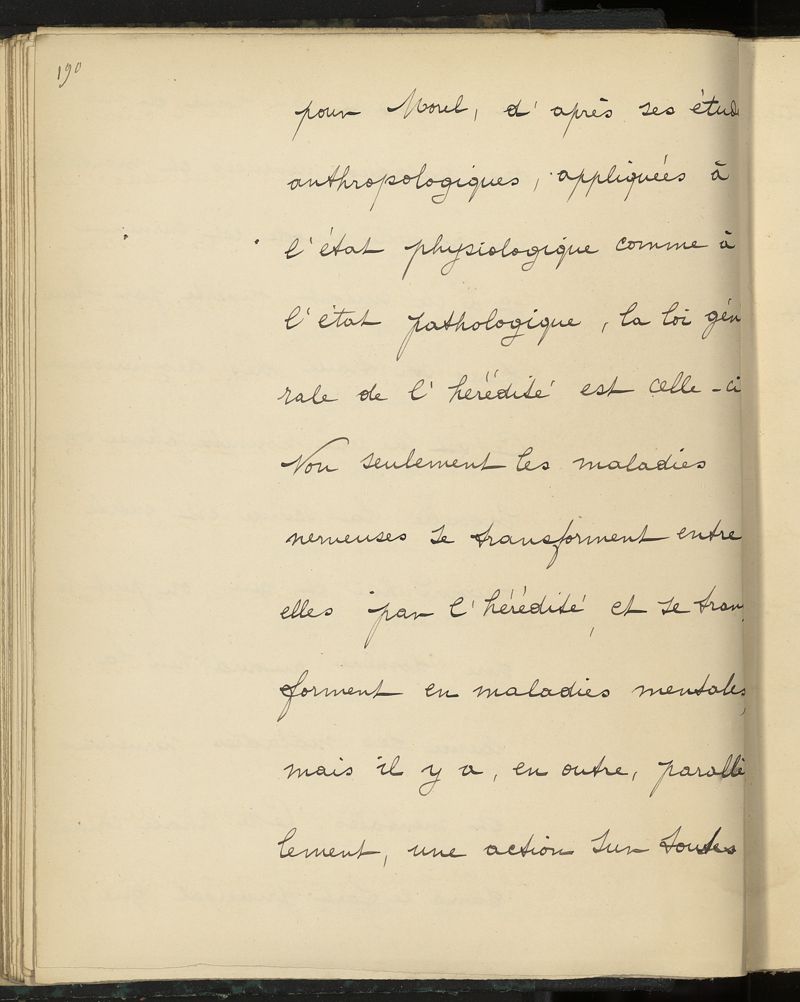 190
pour Morel, d'après ses étude
anthropologiques, appliquées à
l'état physiologique comme à
l'état pathologique, la loi géné
rale de l'hérédité est celle-ci
Non seulement les maladies
nerveuses se transforment entre
elles par l'hérédité, et se trans
forment en maladies mentales,
mais il y a, en outre, parallè
lement, une action sur toutes